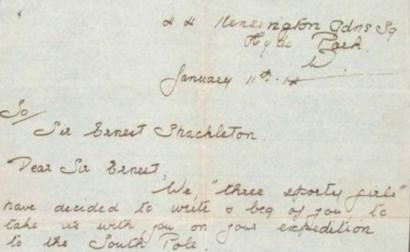 44 Kensington Gdns Sq
Hyde Park
W
January 11th. 14
To
Sir Ernest Shackleton.
Dear Sir Ernest,
We "three sporty girls"
have decided to write & beg of you to
take us with you on your expedition
to the South Pole.